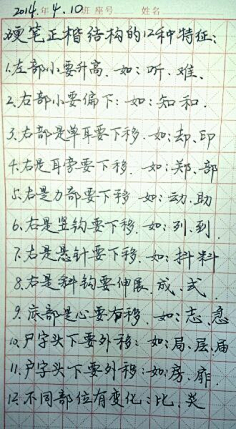 2014.年4.10班 座号 姓名
硬笔正楷结构的12种特征:
1.左部小要升高.如:听、难.
2.右部小要偏下:如:知 和.
3.右部是单耳要下移.如:却、印
4.右是耳旁要下移.如:郑、部
5.右是力部要下移.如:动、助
6.右是竖钩要下移.如:列、到.
7.右是悬针要下移.如:抖 料
8.右是斜钩要伸展、成、式
9.底部是心要右移.如:志、急
10.尸字头下要外移:如:局、层、届
11.户字头下要外移:如:房、扉.
12.不同部位有变化:比、炎